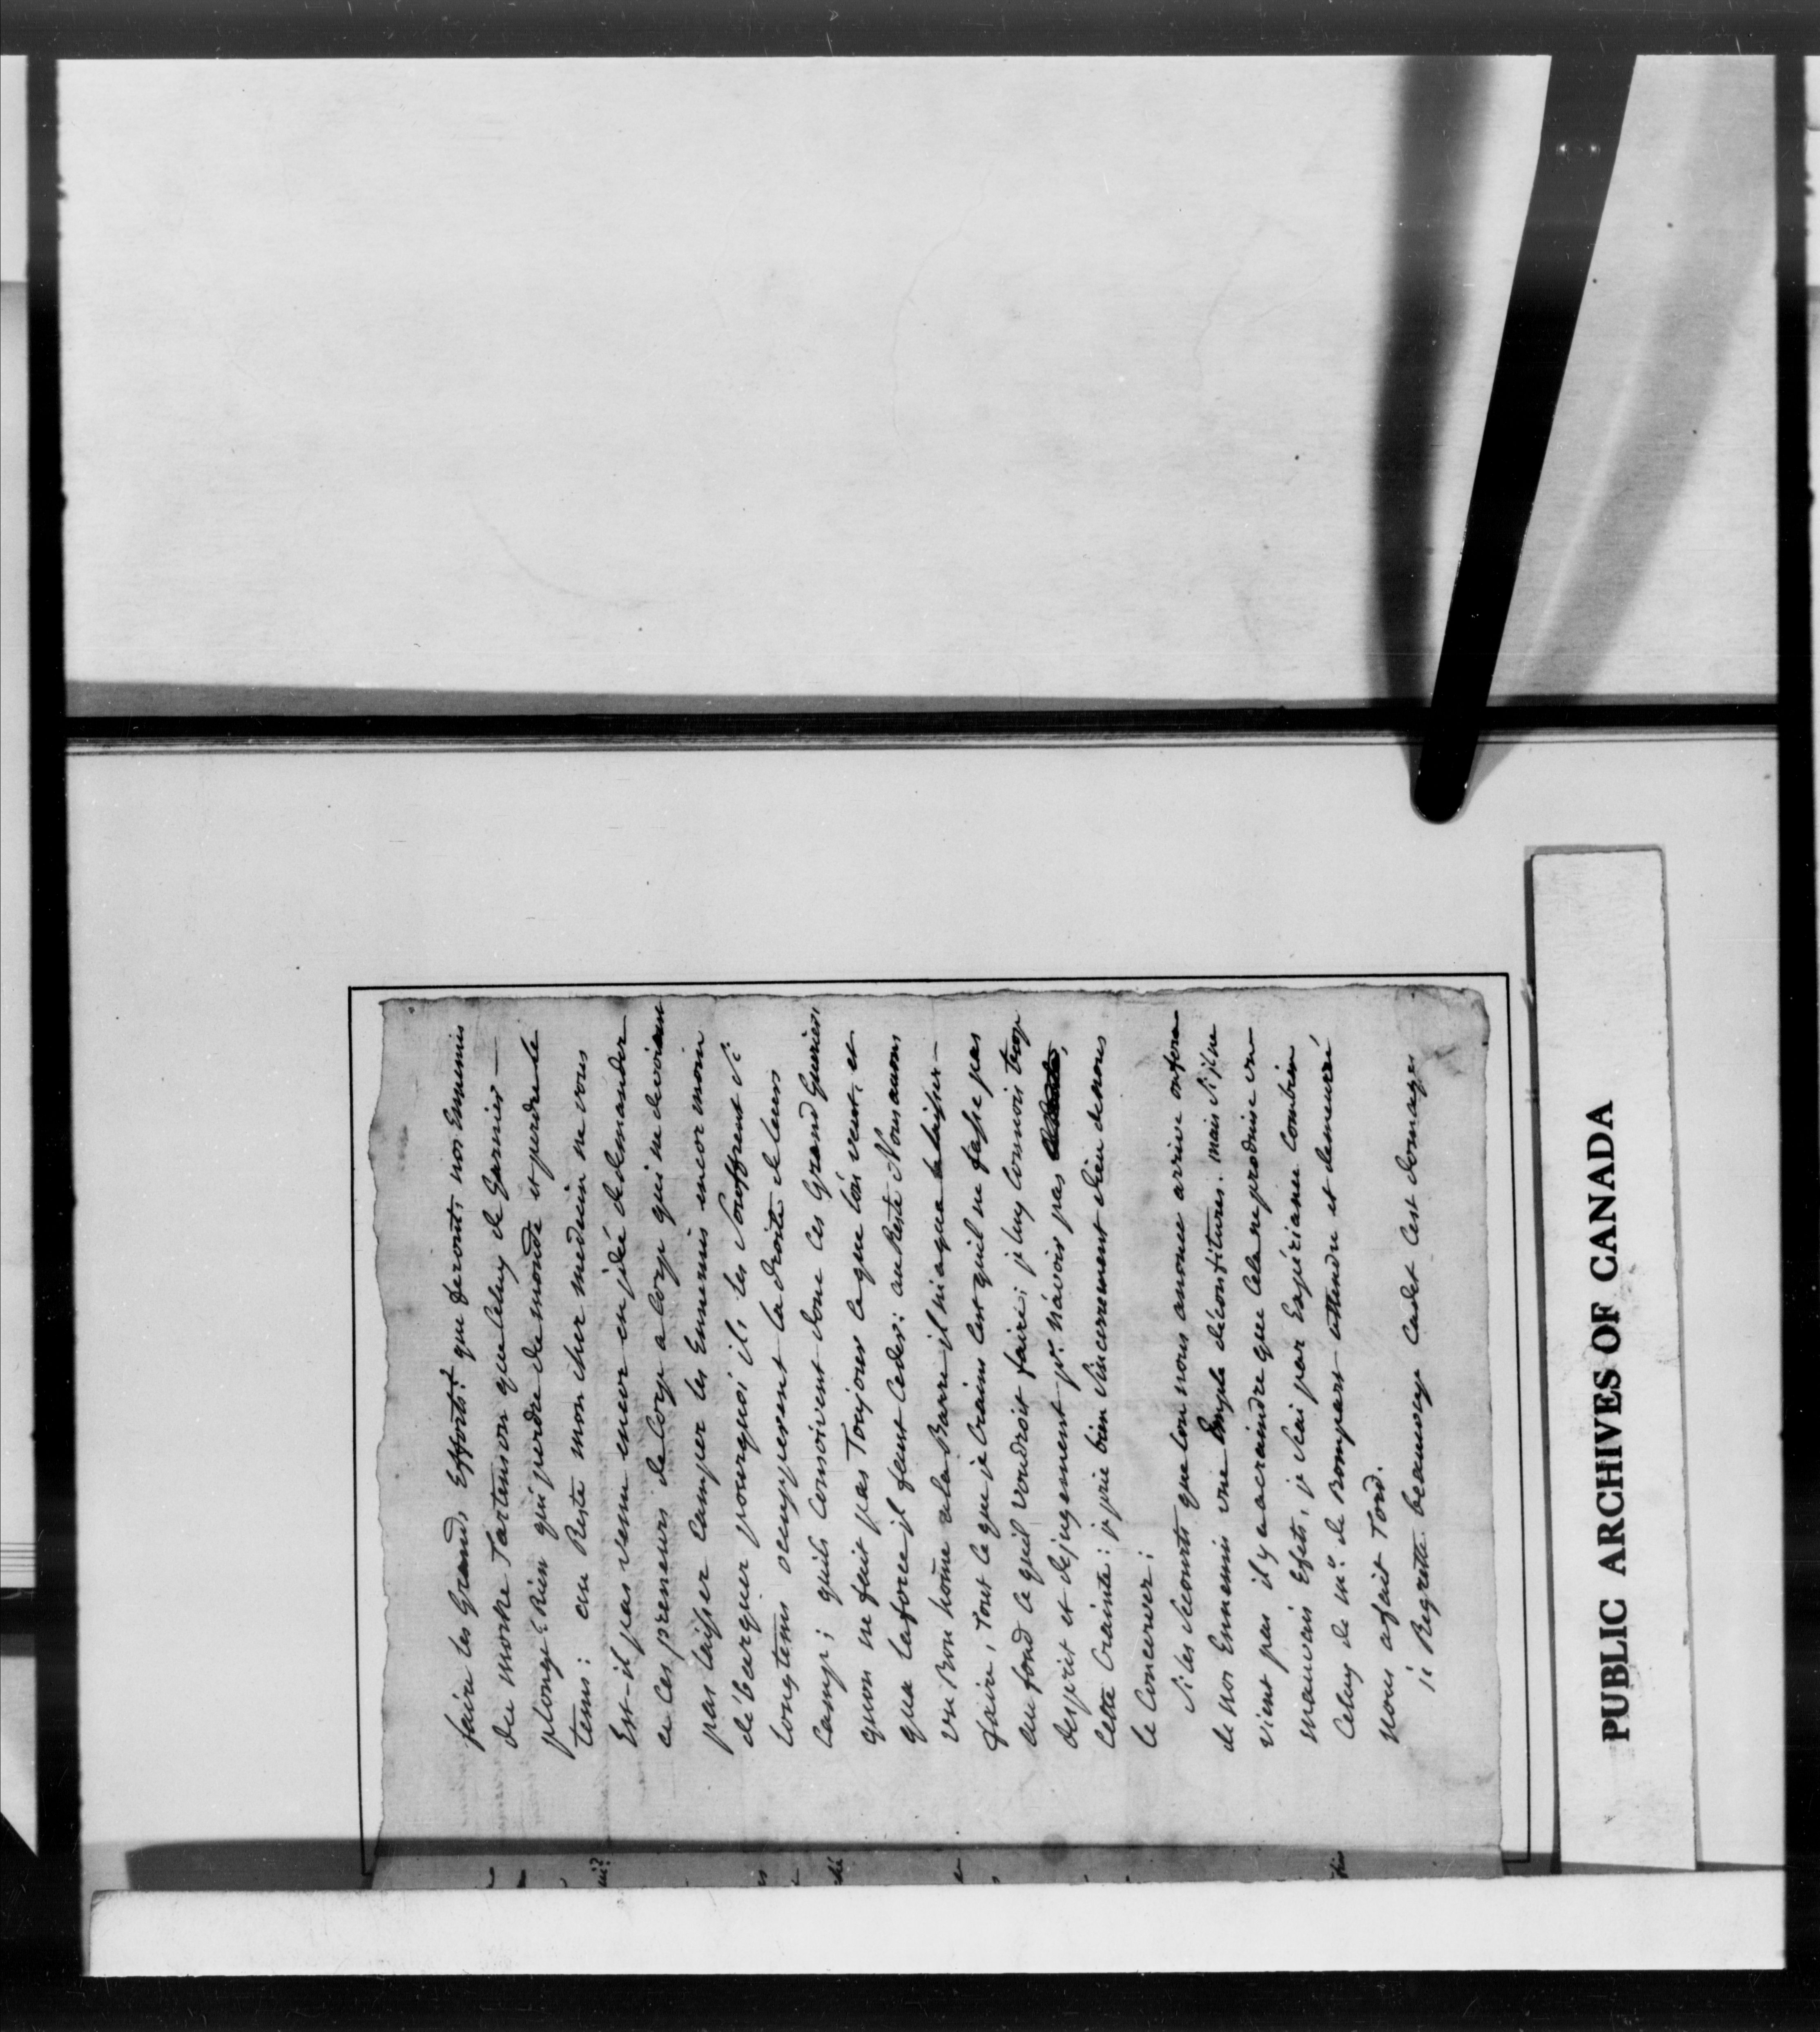 faire les Grands Efforts? que feronts nos Ennemis
du moske Tartensson que Celuy de Garnier —
plonge Rien qui perdre du monde et perdre le
tems: au Reste mon cher medecin ne vous
Est-il pas venu encor en jdée de demander
a Ces preneurs de Corp a Corp qui ne devoient
pas laisser Camper les Ennemis encor moin
débarquer pourquoi ils les Souffrent Si
longtems occupperent la droite de leurs
Camp; quils Consoivent donc Ces Grand Guerier,
quon ne fait pas Toujours ce que lón veut, et
qua la force jl faut Ceder: au Reste Nous avons
un Bon home a la Barre il ni a qua le laisser —
faire, tout ce que je Crains C'est quil ne fasse pas
au fond ce quil voudroit faire; je luy Connois trop
desprit et de jugement pr. n'avoir pas
Cette Crainte: je prie bien Sincerrement dieu de nous
le Conserver:
Si les Secourts que lon nous anonce arrive on fera
de nos Ennemis une Emple déconfitures. mais Si jl ne
vient pas il y a a craindre que Cela ne produise un
mauvais Efets, je Scai par Expériance Combien
Celuy de mr. de Bompart attendu et demeuré
nous a fait Tord.
je Regrette beaucoup Cadet C'est domages
ui?
es
ché
PUBLIC ARCHIVES OF CANADA